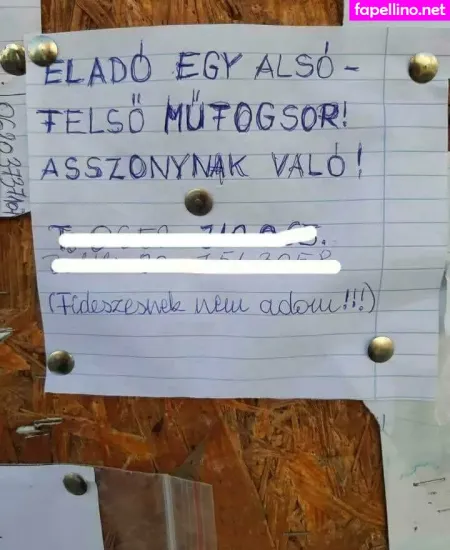 fapellino.net
ELADÓ EGY ALSÓ-
FELSŐ MŰFOGSOR!
ASSZONYNAK VALÓ!
(Fideszesnek nem adom!!!)